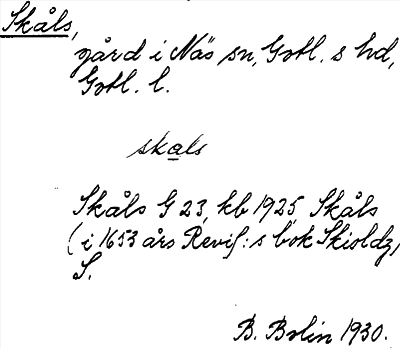 Skåls,
gård i Näs sn, Gotl. s hd,
Gotl. l.
skals
Skåls G 23, kb 1925, Skåls
(i 1653 års Revis: s bok Skioldz)
S.
B. Bolin 1930.